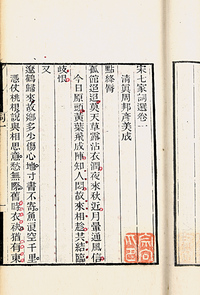 宋七家詞選卷一
清真周邦彥美成
點絳脣
孤館迢迢莫天草露沾衣潤夜來秋近月暈通風信
今日原頭黃葉飛成陣知人悶故來相趁共結臨
岐恨
又
遼鶴歸來故鄉多少傷心地寸書不寄魚浪空千里
憑仗桃根說與相思意愁無際舊時衣袂猶有東